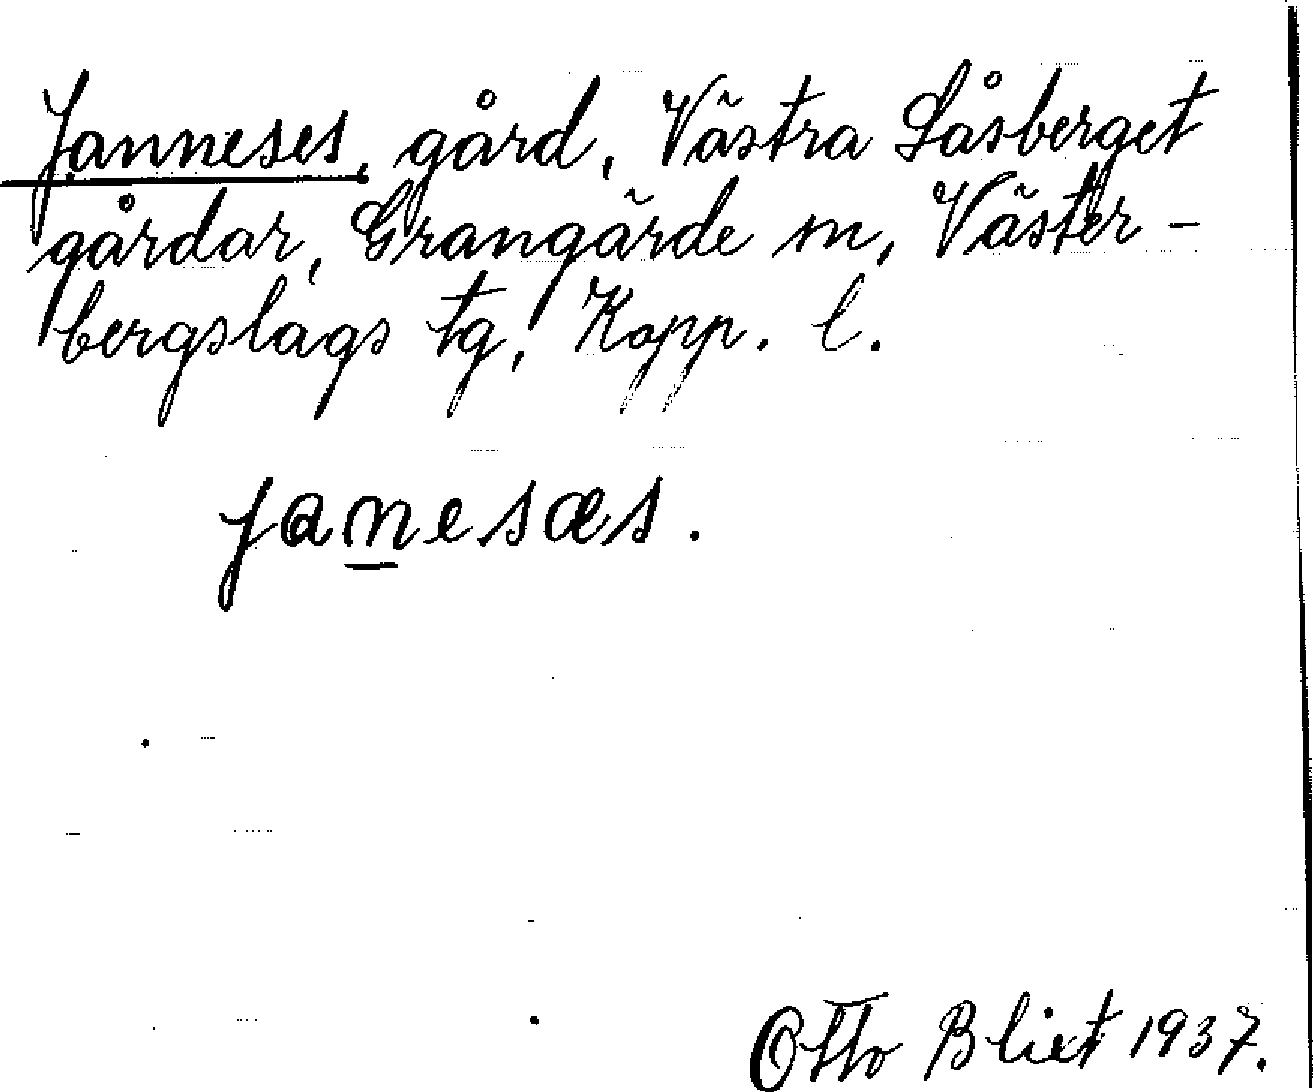 Janneses, gård, Västra Låsberget
gårdar, Grangärde sn, Väster-
bergslags tg, Kopp. l.
janesæs.
Otto Blixt 1937.